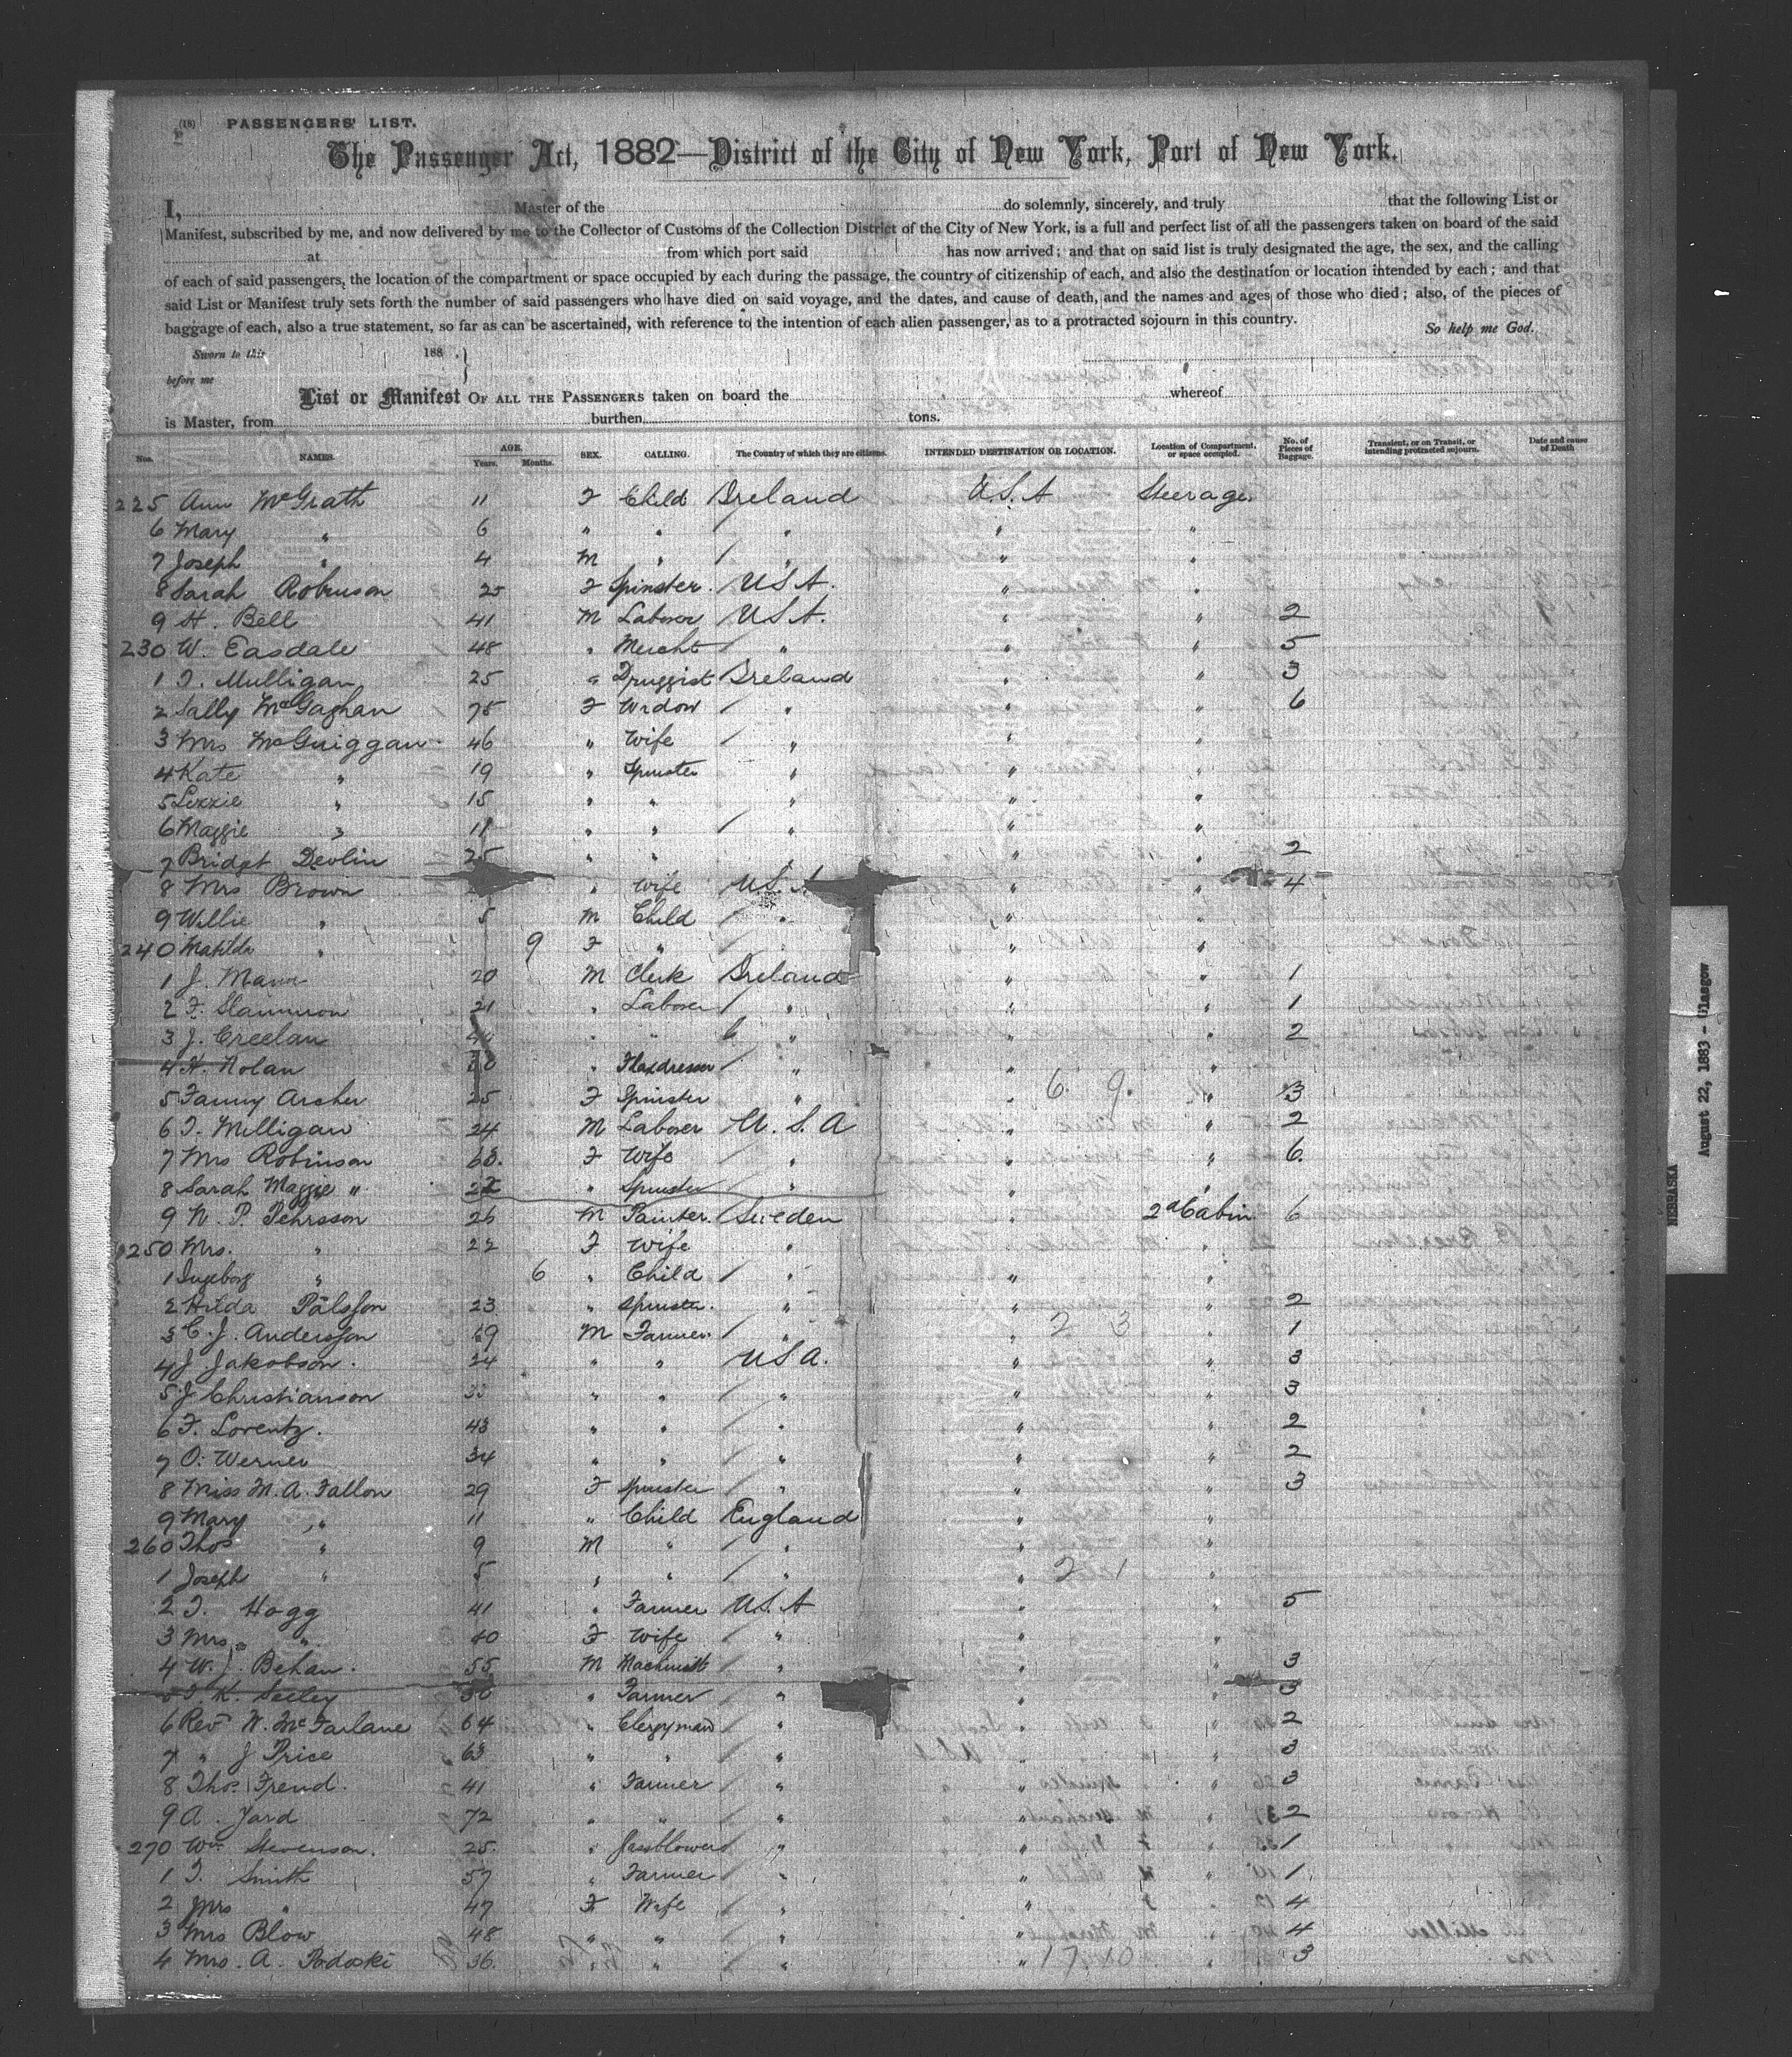 (18) PASSENGERS' LIST.
The Passenger Act, 1882—District of the City of New York, Port of New York.
I, Master of the do solemnly, sincerely, and truly that the following List or
Manifest, subscribed by me, and now delivered by me to the Collector of Customs of the Collection District of the City of New York, is a full and perfect list of all the passengers taken on board of the said
at from which port said has now arrived; and that on said list is truly designated the age, the sex, and the calling
of each of said passengers, the location of the compartment or space occupied by each during the passage, the country of citizenship of each, and also the destination or location intended by each; and that
said List or Manifest truly sets forth the number of said passengers who have died on said voyage, and the dates, and cause of death, and the names and ages of those who died; also, of the pieces of
baggage of each, also a true statement, so far as can be ascertained, with reference to the intention of each alien passenger, as to a protracted sojourn in this country. So help me God.
Sworn to this 188 .}
before me
List or Manifest OF ALL THE PASSENGERS taken on board the whereof
is Master, from burthen tons.
Nos. NAMES. AGE. Years. Months. SEX. CALLING. The Country of which they are citizens. INTENDED DESTINATION OR LOCATION. Location of Compartment, or space occupied. No. of Pieces of Baggage. Transient, or on Transit, or intending protracted sojourn. Date and cause of Death
225 Ann McGrath 11 F Child Ireland U.S.A Steerage
6 Mary " 6 " " " " "
7 Joseph " 4 M " / " " "
8 Sarah Robinson 25 F Spinster. / USA. " "
9 H. Bell 41 M Laborer / USA. " " 2
230 W. Easdale 48 " Mercht / " " " 5
1 T. Mulligan 25 " Druggist Ireland " " 3
2 Sally McGaghan 75 F Widow / " " " 6
3 Mrs McGuiggan 46 " Wife / " " "
4 Kate " 19 " Spinster " " "
5 Lizzie " 15 " " " " "
6 Maggie " 11 " " / " " "
7 Bridget Devlin 25 " " " " 2
8 Mrs Brown " Wife U.S.A " 4
9 Willie " 5 M Child / " " "
240 Matilda " 9 F " / " "
1 J. Mann 20 M Clerk Ireland " " 1
2 F. 21 " Laborer / " " " 1
3 J. Creelan " " " " " 2
4 H. Nolan " Flaxdresser / " " "
5 Fanny Archer 25 F Spinster " " 6. 9. " 3
6 T. Milligan 24 M Laborer U.S.A " " 2
7 Mrs Robinson 63. F Wife " " " 6.
8 Sarah Maggie " " Spinster / " " "
9 N. P. Pehrsson 26 M Painter. Sweden " 2d Cabin 6
250 Mrs. " 22 F Wife " "
1 Ingeborg " 6 " Child / " " "
2 Hilda Pålsson 23 " Spinster. " " " 2
3 C. J. Andersson 19 M Farmer. / " " 2 3 " 1
4 J. Jakobson. 24 " " USA. " " 3
5 J Christianson " " / " " " 3
6 F. Lorentz. 43 " " / " " " 2
7 O. Werner 34 " " / " " " 2
8 Miss M. A. Fallon 29 F Spinster / " " " 3
9 Mary " 11 " Child England " "
260 Thos " 9 M " / " " "
1 Joseph " 5 " " / " " 2 1 "
2 T. Hogg 41 " Farmer U.S.A " " 5
3 Mrs " 40 F Wife / " " "
4 W. J. Behan. 55 M Machinist / " " " 3
5 T. K. Seeley " Farmer / " " 3
6 Revd W. McFarlane 64 " Clergyman " " " 2
7 " J Price 63 " " / " " " 3
8 Thos. Frend. 41 " Farmer / " " " 3
9 A. Jard 72 " " / " " " 2
270 Wm Stevenson. 25. " Glassblower / " " " 1
1 T. Smith 57 " Farmer / " " " 1
2 Mrs " 47 F Wife / " " " 4
3 Mrs Blow 48 " " / " " " 4
4 Mrs. A. Podoski 36. " / " " 17. 10 " 3
NEBRASKA
August 22, 1883 - Glasgow